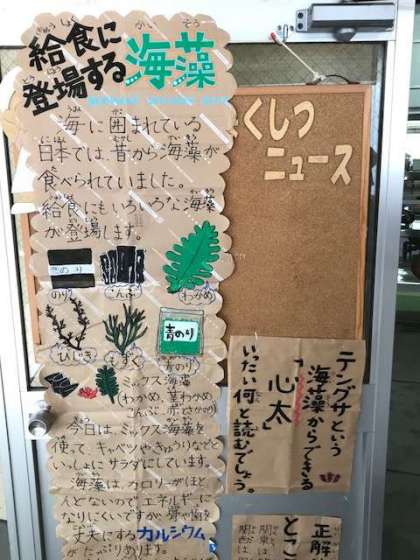 給食に
登場する海藻
海に囲まれている
日本では、昔から海藻が
食べられていました。
給食にもいろいろな海藻
が登場します。
のり
こんぶ
わかめ
ひじき
もずく
青のり
青のり
ミックス海藻
(わかめ、茎わかめ、
こんぶ、赤さかのり)
今日は、ミックス海藻を
使って、キャベツやきゅうりなどと
いっしょにサラダにしています。
海藻は、カロリーがほと
んどないので、エネルギーに
なりにくいですが、骨や歯を
丈夫にするカルシウム
がたっぷりあります。
くしつ
ニュース
テングサという
海藻からできる
「心太」
いったい何と読むでしょう。
正解